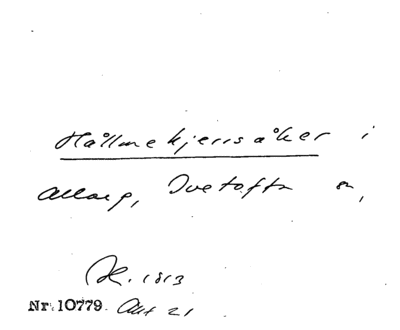 Hållmekjerrsåker i
allarg, Tvetofta sn,
K. 1813
Nr. 10779. Akt 21